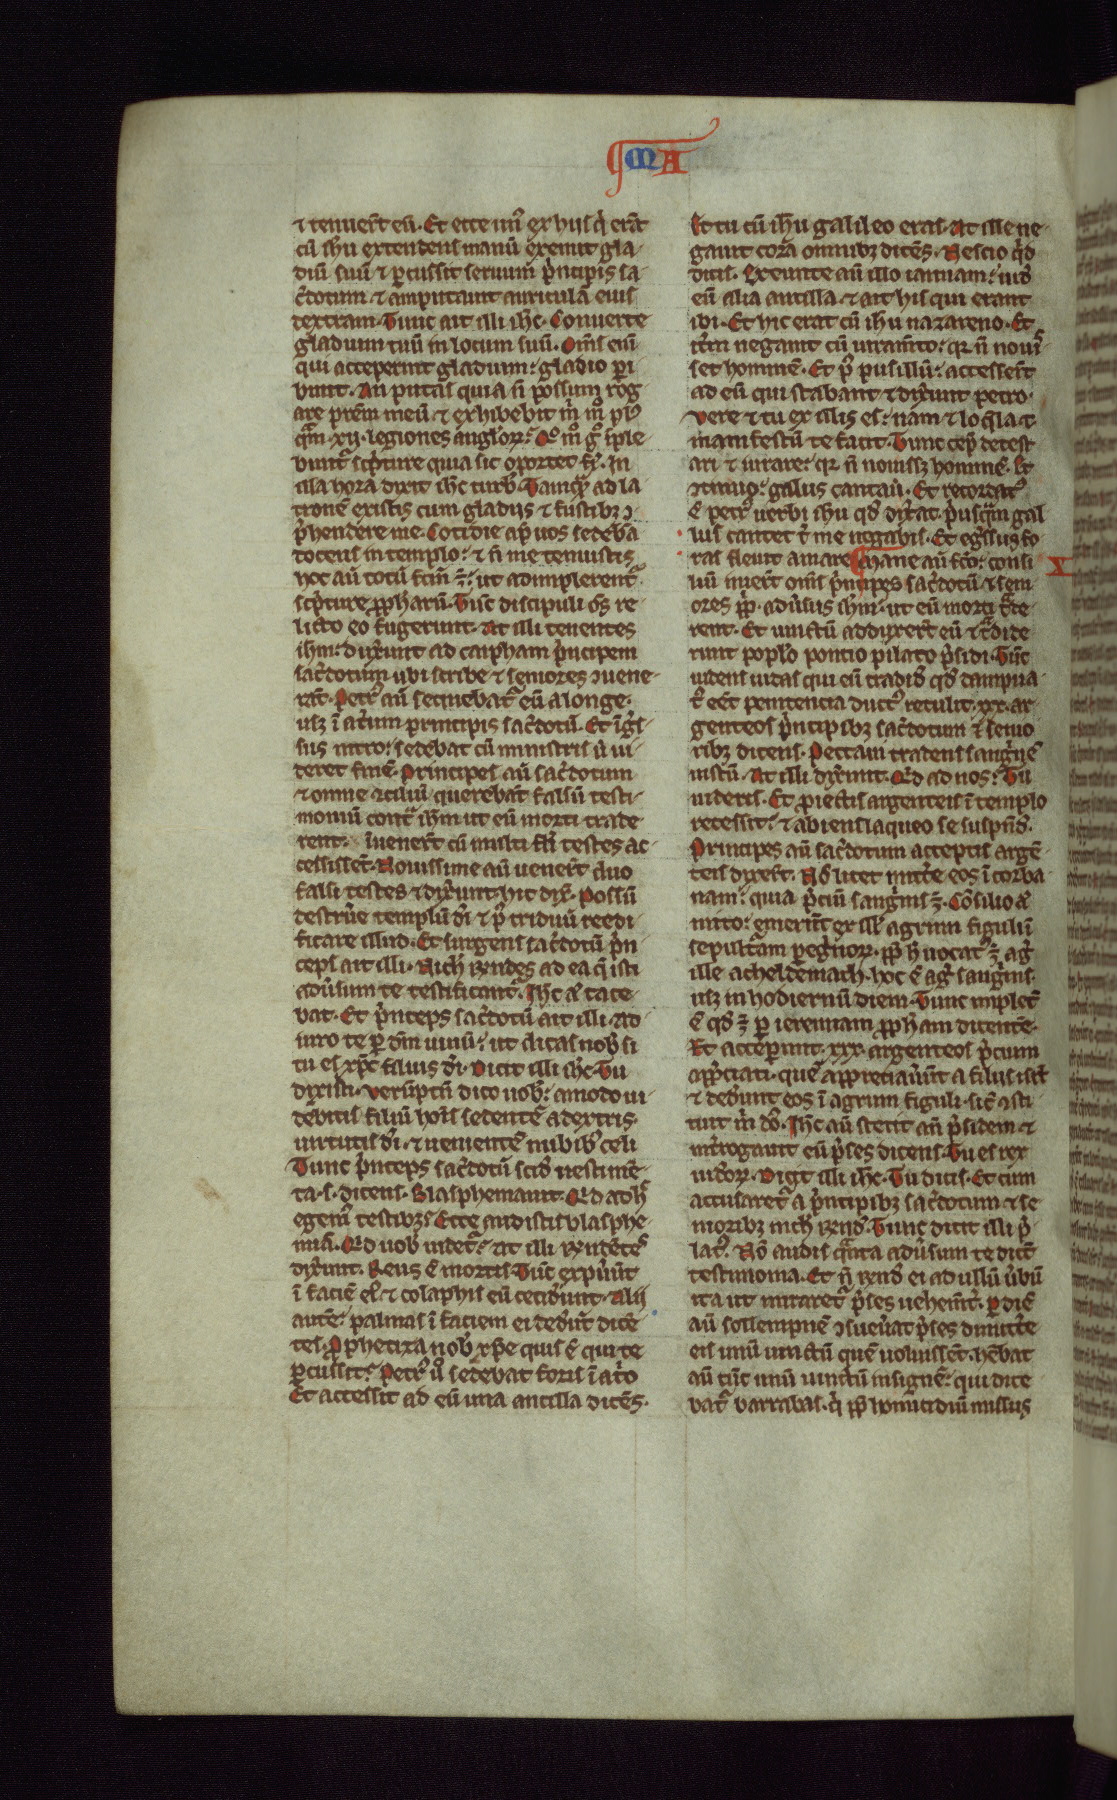 MA
⁊ tenuer̄t eū. Et ecce un᷒ ex hijs q̇ erāt
cū ihu extendens manū exemit gla
diū suū ⁊ ꝑcussit seruum p̄ncipis sa
c̄dotum ⁊ amputauit auriculā eius
dextram. Tunc ait illi ihc. Conuerte
gladium tuū in locum suū. Om̄s eni̅
qui acceperint gladium: gladio ꝑi
bunt. An putas quia n̄ possum rog
are pr̄em meū ⁊ exhibebit m̄ m̊ pl᷒
q̄m .xij. legiones anglorꝝ. Qͦ m̊ gͦ īple
bunt᷑ sc̄pture quia sic oportet fi̅. In
illa hora dixit ihc turb᷒ Tamq̄ ad la
tronē existis cum gladijs ⁊ fustibꝫ ↄ
p̄hendere me. Cotidie ap̄ uos sedebā
docens in templo: ⁊ n̄ me tenuistis
hoc aū totū fcm̄ ē: ut adimplerent᷑
sc̄pture ꝓpharū. Tūc discipuli o᷒s re
licto eo fugerunt. At illi tenentes
ihm: duxerunt ad caipham p̄ncipem
sac̄dotum ubi scribe ⁊ seniores ↄuene
rāt. Petr᷒ aū sequebat᷑ eū a longe.
usꝫ ī atrium principis sac̄dotū. Et īḡs
sus intro: sedebat cū ministris ut ui
deret finē. Principes aū sac̄dotum
⁊ omne ↄciliū querebāt falsū testi
moniū cont᷑ ihm ut eū morti trade
rent. ī uenert̄ cū multi fl̄i testes ac
cessissēt. Nouissime aū uenert̄ duo
falsi testes ⁊ dixerunt. hic dix̄. Possū
destruēre templū di̅ ⁊ p᷒ triduū reedi
ficare illud. Et surgens sac̄dotū p̄n
ceps ait illi. Nich̄ rn̄des ad ea q̄ isti
adūsum te testificant᷑. Ihc aū tace
bat. Et p̄nceps sac̄dotū ait illi. Ad
iuro te ꝑ dm̄ uiuū: ut dicas nob᷒ si
tu es xpc filius di̅. Dicit illi ihc. Tu
dixisti. Verūptn̄ dico uob᷒: amodo ui
debitis filiū hoīs sedentē a dextris
uirtutis di̅. ⁊ uenientē nubib᷒ celi
Tunc p̄nceps sac̄dotū scid̄ uestimē
ta .s. dicens. Blasphemauit. Qd̄ adhᷓ
egem᷒ testibꝫ. Ecce audistis blasphe
miā. Qd̄ uob᷒ uidet᷑: at illi rn̄dētes
dixerunt. Reus ē mortis. Tūc expuūt
ī faciē ei᷒ ⁊ colaphis eū cecidunt. Alij
autē: palmas ī faciem ei dedūt dicē
tes. Prophetiza nob᷒ xpe quis ē qui te
ꝑcussit. Petr᷒ ū sedebat foris ī at̄o
Et accessit ad eū una ancilla dicēs.
Et tu cū ihu galileo eras. At ille ne
gauit corā omnibꝫ dicēs. Nescio qd̄
dicis. Exeunte aū illo ianuam: uid̄
eū alia ancilla. ⁊ ait his qui erant
ibi. Et hic erat cū ihu nazareno. Et
it̄m negauit cū iuram̄to: qr n̄ nouis
set hominē. Et p᷒ pusillū: accessert̄
ad eū qui stabant ⁊ dixrunt petro.
Vere ⁊ tu ex illis es: nam ⁊ loq̄la t.
manifestū te facit. Tunc cep̄ detest
ari ⁊ iurare: qr n̄ nouissꝫ hominē. Et
ↄtinuo: gallus cantauit. Et recordat᷒
ē petr᷒ uerbi ihu qd̄ dixat. p̄usq̄m gal
lus cantet t̄ me negabis. Et eḡssus fo
ras fleuit amare. Mane aū fc̄o: consi
liū inier̄t om̄s p̄ncipes sac̄dotū ⁊ seni
ores pp̄. adūsus ihm. ut eū morti t᷑de
rent. Et uinctū adduxert̄ eū ⁊ t᷑dide
runt poncio pilato p̄sidi. Tūc
uidens iudas qui eū tradid̄ qd̄ dampna
t᷒ eēt penitencia duct᷒ retulit .xxx. ar
genteos p̄ncipibꝫ sac̄dotum ⁊ senio
ribꝫ dicens. Peccaui tradens sanguinē
iustū. At illi dixerunt. Qd̄ ad nos: Tu
uideris. Et ꝓiectis argenteis ī templo
recessit: ⁊ abiens laqueo se suspnd̄.
Principes aū sac̄dotum acceptis argē
teis dixert̄. Nō licet mittere eos ī corba
nam: quia p̄ciū sanguinis ē. Cōsilio aū
inito: emerūt ex ill᷒ agrum figuli ī
sepulturam pegrinorꝝ. ꝓp̄ h̄ uocat᷒ ē aḡ
ille acheldemach. hoc ē aḡ sanguinis.
usꝫ in hodiernū diem. Tunc implet̄
ē qd̄ ē ꝑ ieremiam ꝓpham dicentē.
Et acceperunt .xxx. argenteos p̄cium
app̄ciati. quē appreciauūt a filijs isrl̄
⁊ dedrunt eos ī agrum figuli. sic̄ ↄsti
tuit m̄ dn̄s. Ihc aū stetit an̄ p̄sidem. ⁊
int̄rogauit eū p̄ses dicens. Tu es rex
iudeorꝝ. Dixit illi ihc. Tu dicis. Et cum
accusaret᷑ a p̄ncipibꝫ sac̄dotum ⁊ se
nioribꝫ nich̄ rn̄d̄. Tunc dicit illi pi
lat᷒. Nō audis q̄nta adūsum te dicūt
testimonia. Et n̄ rn̄d̄ ei ad ullū ūbū
ita ut miraret᷑ p̄ses uehem̄t̄. ꝑ diē
aū sollempnē ↄsueuat p̄ses dimitt̄e
eis unū uinctū quē uoluissent. hēbat
aū tūc unū uinctū insignē: qui dice
bat᷑ barrabas. q̇ ꝓp̄ homicidiū missus
X